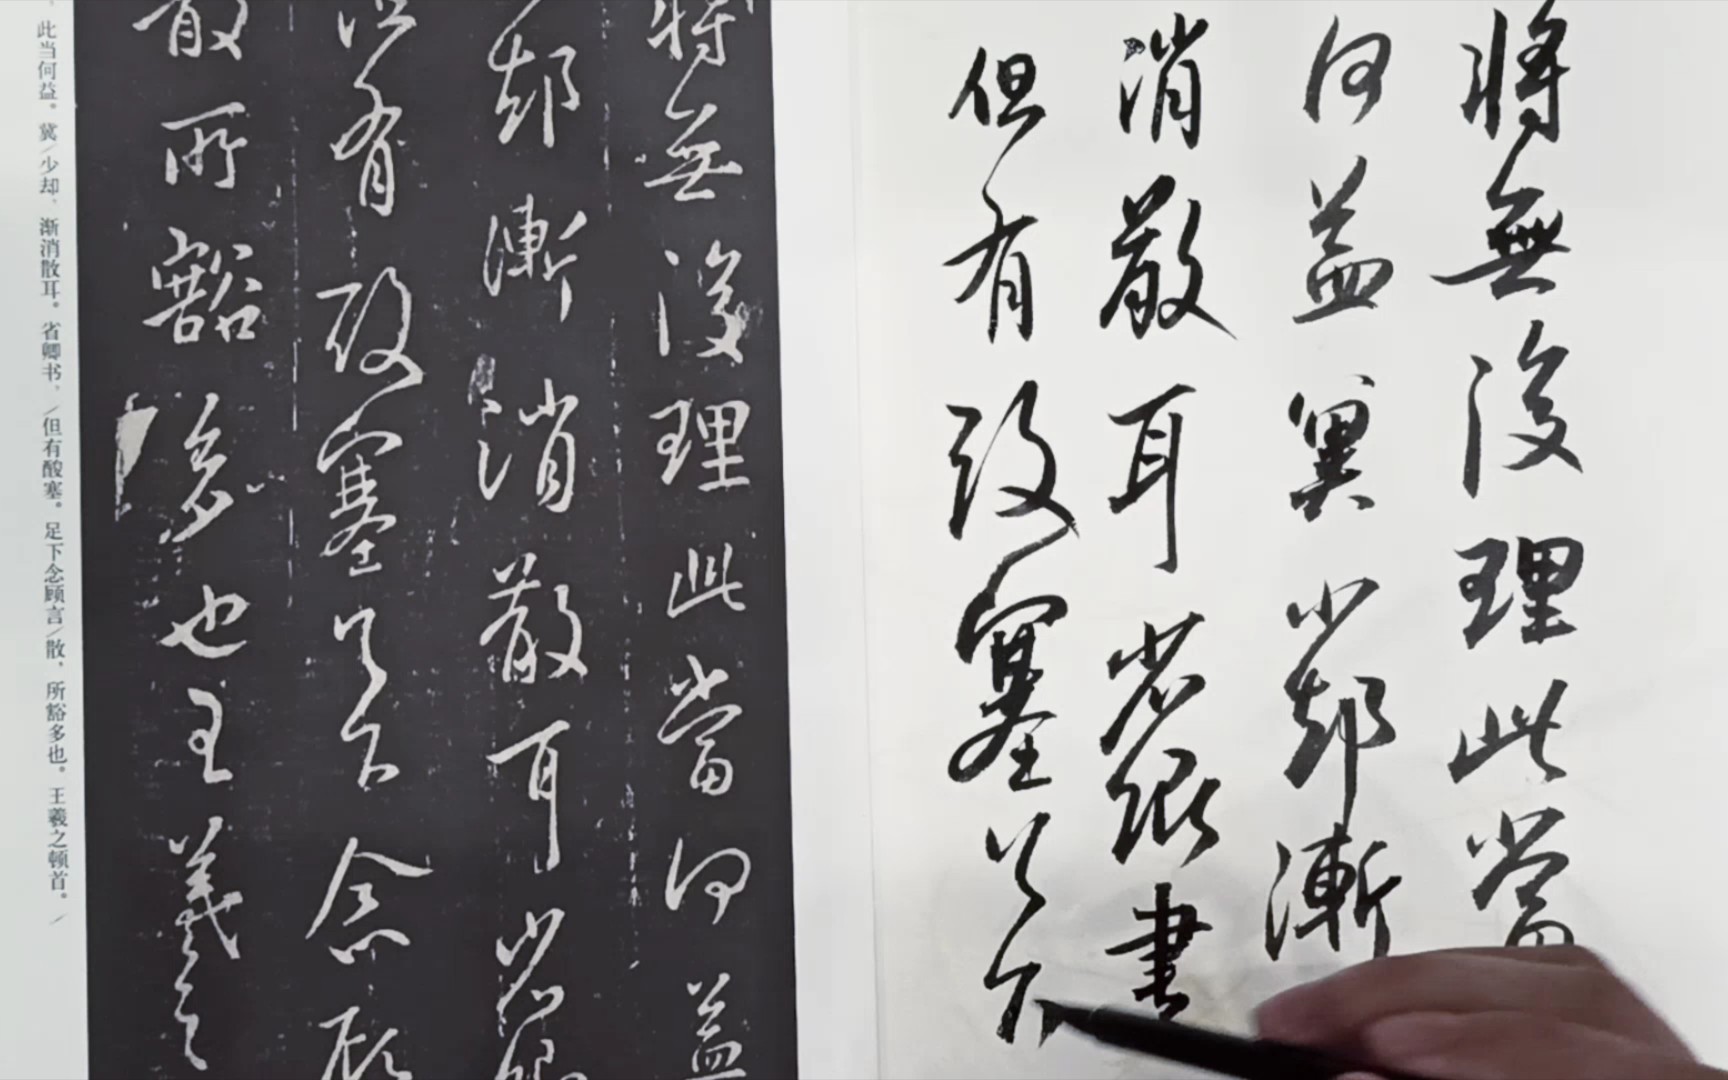 將無復理此當
何益冀少却漸
消散耳省卿書
但有酸塞足下
將無復理此當何益
却漸消散耳省卿
但有酸塞足下念顧
散所豁多也王羲之
此当何益。冀／少却，渐消散耳。省卿书，／但有酸塞。足下念顾言／散，所豁多也。王羲之顿首。／